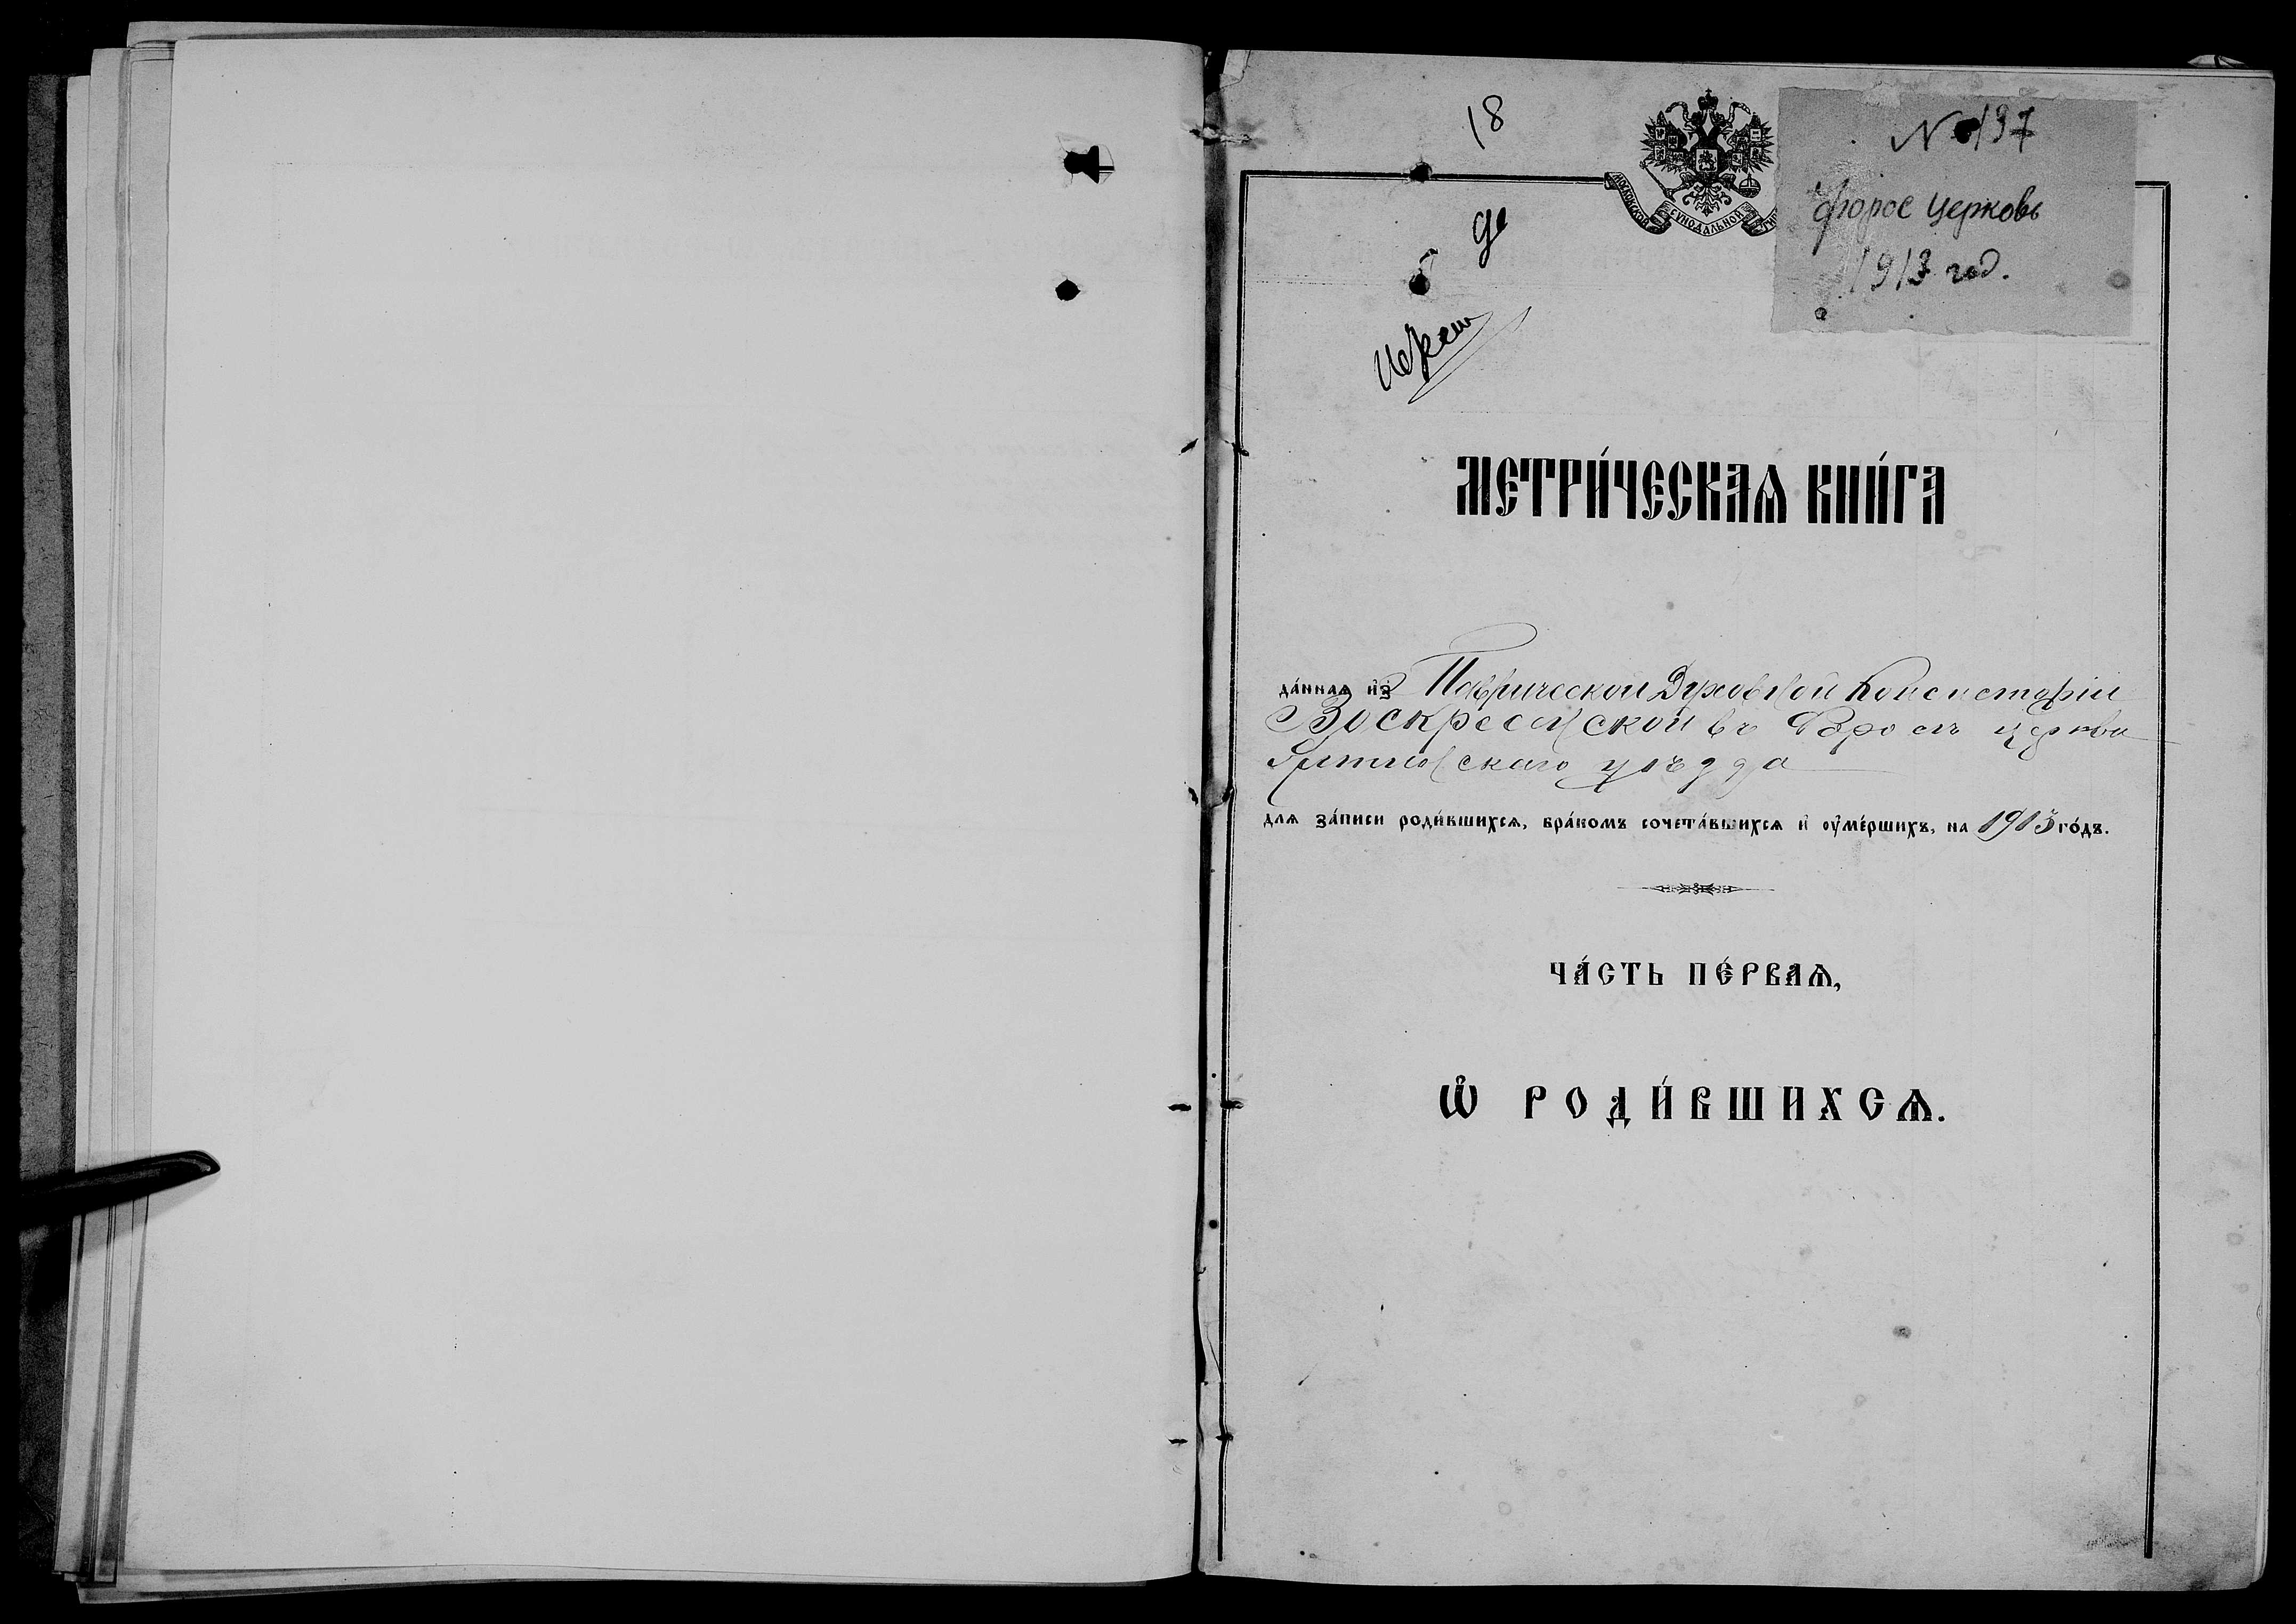 18
N 197
Форос церковь
1913 год.
МОСКОВСКОЙ СѴНОДАЛЬНОЙ
МЕТРИ́ЧЕСКАѦ КНИ́ГА
да́ннаѧ и҆з̾ Таврической Духовной Консисторіи
Воскресенской въ Форосѣ церкви
Ялтинскаго уѣзда
длѧ за́писи роди́вшихсѧ, бра́комъ сочета́вшихсѧ и҆ оу҆ме́ршихъ, на 1913 го́дъ.
ЧА́СТЬ ПЕ́РВАѦ,
Ѡ҆ РОДИ́ВШИХСѦ.